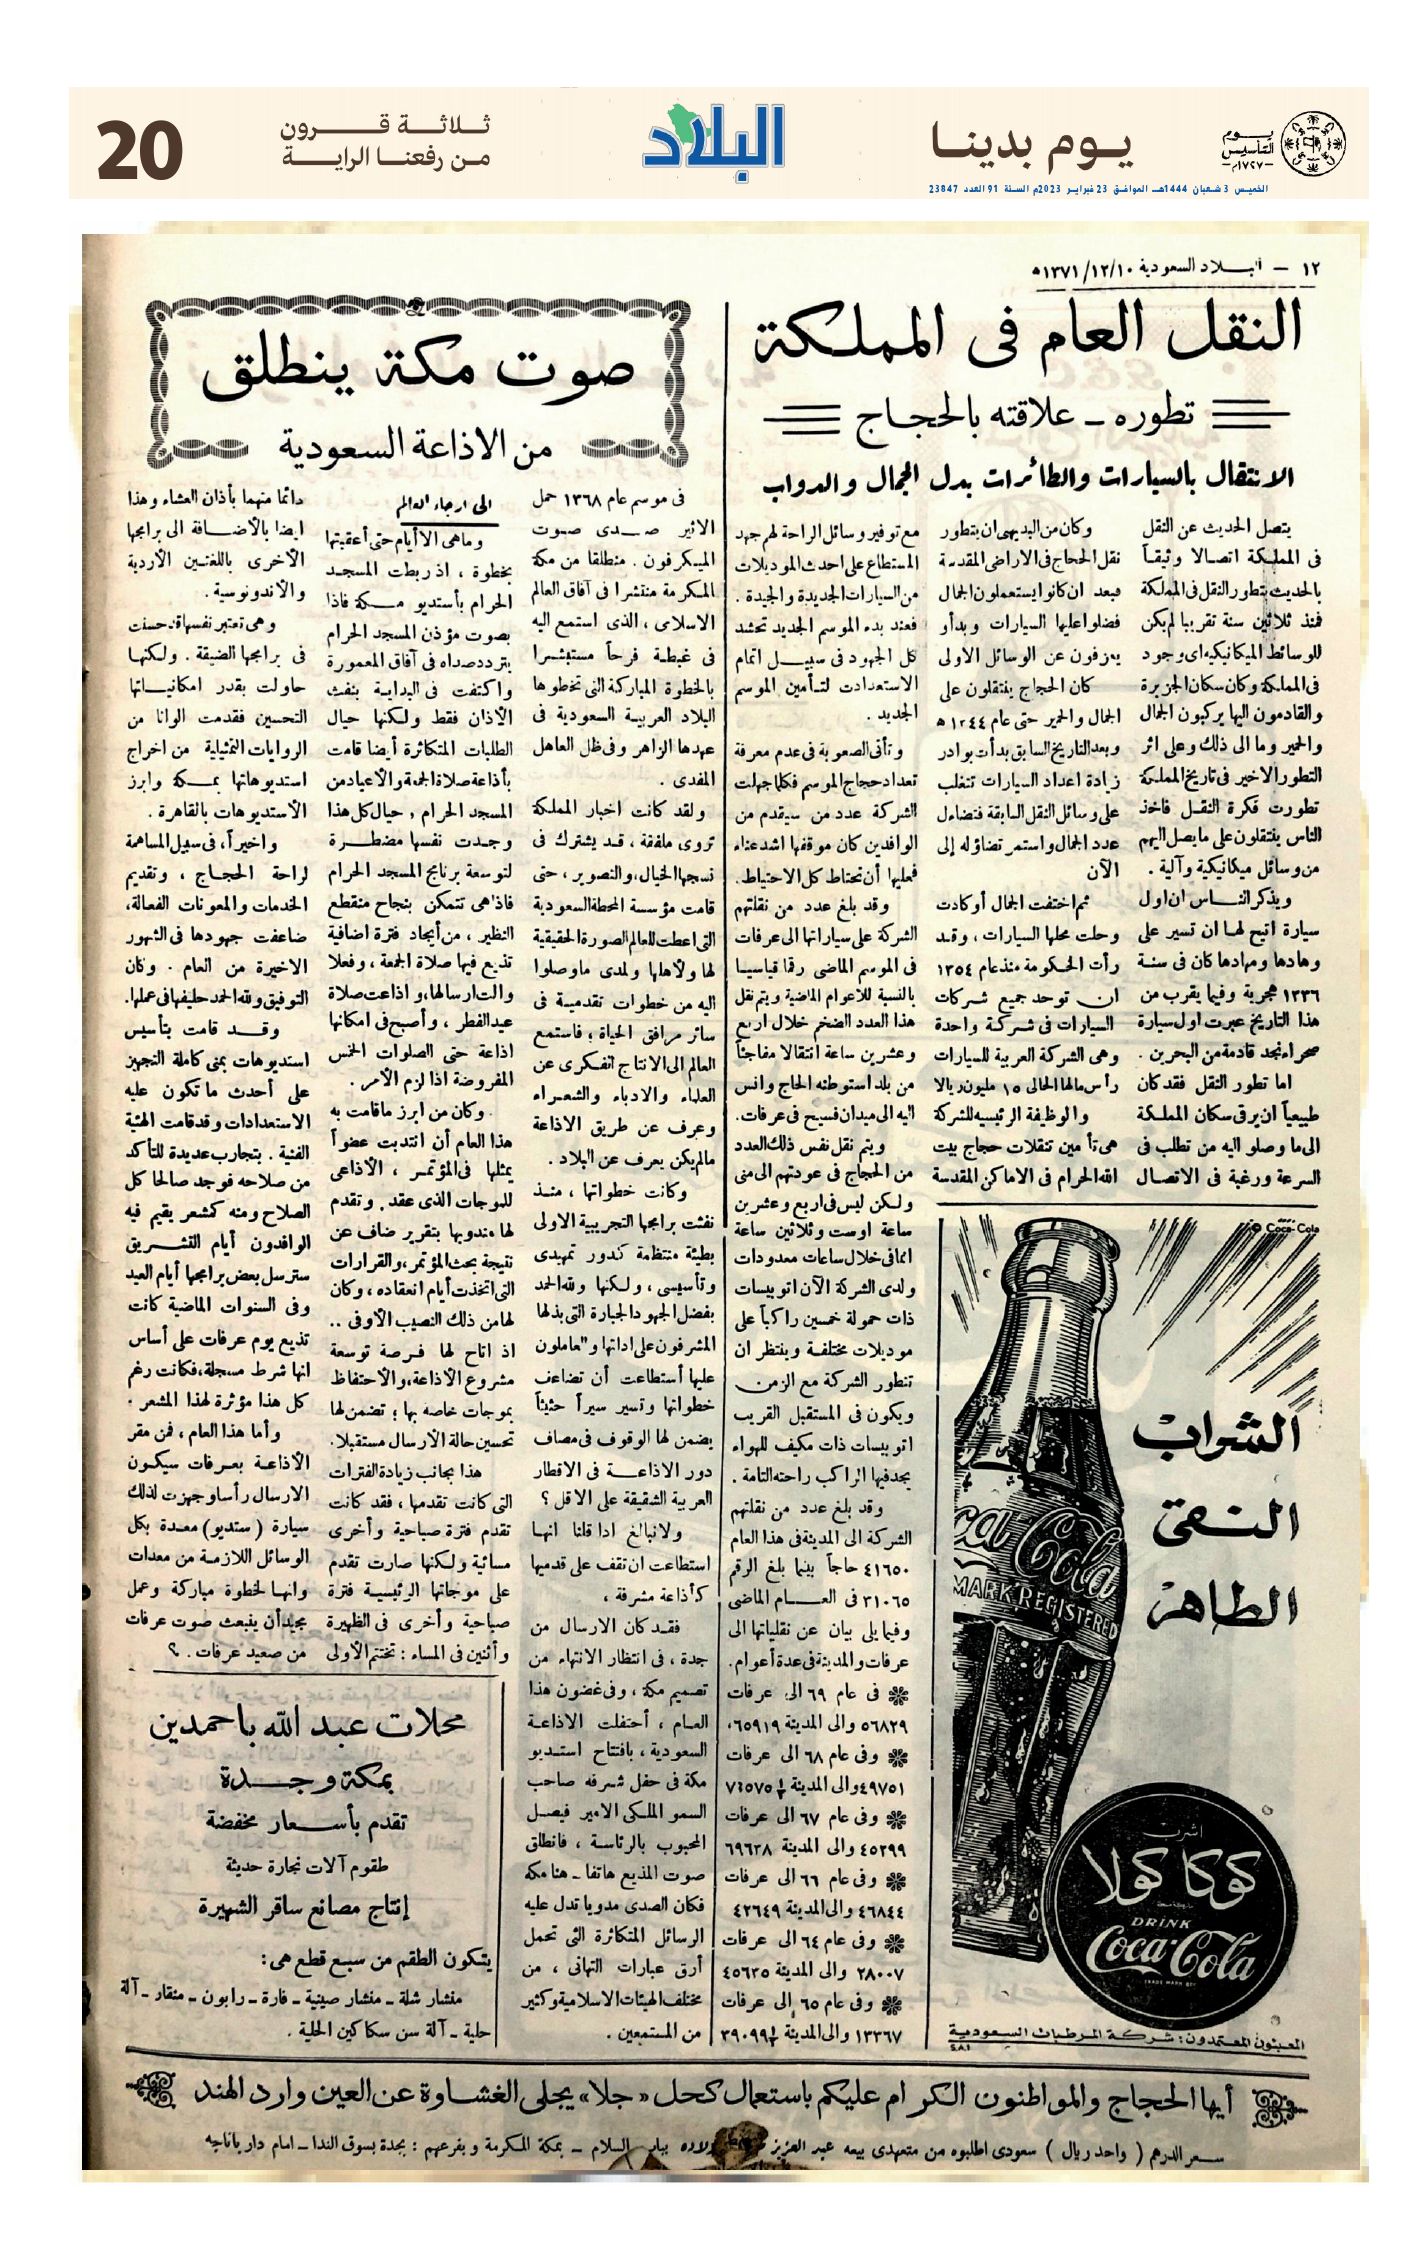 يوم التأسيس
١٧٢٧م
يوم بدينا
الخميس 3 شعبان 1444هـ الموافق 23 فبراير 2023م السنة 91 العدد 23847
البلاد
ثلاثة قرون
من رفعنا الراية
20
١٢ – البلاد السعودية ١٣٧١/١٢/١٠ه
النقل العام فى المملكة
تطوره – علاقته بالحجاج
الانتقال بالسيارات والطائرات بدل الجمال والدواب
يتصل الحديث عن النقل
فى المملكة اتصالا وثيقاً
بالحديث بتطور النقل فى المملكة
فمنذ ثلاثين سنة تقريبا لم يكن
للوسائط الميكانيكيه اى وجود
فى المملكة وكان سكان الجزيرة
والقادمون اليها يركبون الجمال
والحمير وما الى ذلك وعلى اثر
التطور الاخير فى تاريخ المملكة
تطورت فكرة النقل فاخذ
الناس ينتقلون على ما يصل اليهم
من وسائل ميكانيكية وآلية .
ويذكر الناس ان اول
سيارة اتيح لها ان تسير على
وهادها ومهادها كان فى سنة
١٣٣٦ هجرية وفيما يقرب من
هذا التاريخ عبرت اول سيارة
صحراء نجد قادمة من البحرين .
اما تطور النقل فقد كان
طبيعياً ان يرقى سكان المملكة
الى ما وصلو اليه من تطلب فى
السرعة ورغبة فى الاتصال
وكان من البديهى ان يتطور
نقل الحجاج فى الاراضى المقدسة
فبعد ان كانوا يستعملون الجمال
فضلوا عليها السيارات وبدأو
يعزفون عن الوسائل الاولى
كان الحجاج ينتقلون على
الجمال والحمير حتى عام ١٣٤٤ ه
وبعد التاريخ السابق بدأت بوادر
زيادة اعداد السيارات تتغلب
على وسائل النقل السابقة فتضاءل
عدد الجمال واستمر تضاؤله إلى
الآن
ثم اختفت الجمال أو كادت
وحلت محلها السيارات ، وقد
رأت الحكومة منذ عام ١٣٥٤
ان توحد جميع شركات
السيارات فى شركة واحدة
وهى الشركة العربية للسيارات
رأس مالها الحالى ١٥ مليون ريالا
والوظيفة الرئيسيه للشركة
هى تأمين تنقلات حجاج بيت
الله الحرام فى الاماكن المقدسة
مع توفير وسائل الراحة لهم جهد
المستطاع على احدث الموديلات
من السيارات الجديدة والجيدة .
فعند بدء الموسم الجديد تحشد
كل الجهود فى سبيل اتمام
الاستعدادت لتأمين الموسم
الجديد .
وتأتى الصعوبة فى عدم معرفة
تعداد حجاج الموسم فكلما جهلت
الشركة عدد من سيقدم من
الوافدين كان موقفها اشد عناء
فعليها أن تحتاط كل الاحتياط .
وقد بلغ عدد من نقلتهم
الشركة على سياراتها الى عرفات
فى الموسم الماضى رقما قياسيا
بالنسبة للاعوام الماضية ويتم نقل
هذا العدد الضخم خلال اربع
وعشرين ساعة انتقالا مفاجئاً
من بلد استوطنه الحاج وانس
اليه الى ميدان فسيح فى عرفات .
ويتم نقل نفس ذلك العدد
من الحجاج فى عودتهم الى منى
ولكن ليس فى اربع وعشرين
ساعة اوست وثلاثين ساعة
انما فى خلال ساعات معدودات
ولدى الشركة الآن اتوبيسات
ذات حمولة خمسين راكباً على
موديلات مختلفة وينتظر ان
تتطور الشركة مع الزمن
ويكون فى المستقبل القريب
اتوبيسات ذات مكيف للهواء
يجد فيها الراكب راحته التامة .
وقد بلغ عدد من نقلتهم
الشركة الى المدينة فى هذا العام
٤١٦٥٠ حاجاً بينما بلغ الرقم
٣١٠٦٥ فى العام الماضى
وفيما يلى بيان عن نقلياتها الى
عرفات والمدينة فى عدة أعوام .
فى عام ٦٩ الى عرفات
٥٦٨٢٩ والى المدينة ٦٥٩١٩،
وفى عام ٦٨ الى عرفات
٤٩٧٥١ والى المدينة
وفى عام ٦٧ الى عرفات
٤٥٢٩٩ والى المدينة ٦٩٦٣٨
وفى عام ٦٦ الى عرفات
٤٦٨٤٤ والى المدينة ٤٢٦٤٩
وفى عام ٦٤ الى عرفات
٢٨٠٠٧ والى المدينة ٤٥٦٣٥
وفى عام ٦٥ الى عرفات
١٣٣٦٧ والى المدينة
© Coca-Cola
الشراب
النقى
الطاهر
Coca-Cola
MARK REGISTERED
اشرب
كوكا كولا
DRINK
Coca-Cola
TRADE MARK REG
المعبئون المعتمدون : شركة المرطبات السعودية
صوت مكة ينطلق
من الاذاعة السعودية
فى موسم عام ١٣٦٨ حمل
الاثير صدى صوت
الميكرفون . منطلقا من مكة
المكرمة منتشرا فى آفاق العالم
الاسلامى ، الذى استمع اليه
فى غبطة فرحاً مستبشرا
بالخطوة المباركة التى تخطوها
البلاد العربية السعودية فى
عهدها الزاهر وفى ظل العاهل
المفدى .
ولقد كانت اخبار المملكة
تروى ملفقة ، قد يشترك فى
نسجها الخيال ، والتصوير ، حتى
قامت مؤسسة المحطة السعودية
التى اعطت للعالم الصورة الحقيقية
لها ولأهلها ولمدى ما وصلوا
اليه من خطوات تقدمية فى
سائر مرافق الحياة ؛ فاستمع
العالم الى الانتاج الفكرى عن
العلماء والادباء والشعراء
وعرف عن طريق الاذاعة
مالم يكن يعرف عن البلاد .
وكانت خطواتها ، منذ
نفثت برامجها التجريبية الاولى
بطيئة منتظمة كدور تمهيدى
وتأسيسى ، ولكنها ولله الحمد
بفضل الجهود الجبارة التى بذلها
المشرفون على اداتها والعاملون
عليها أستطاعت أن تضاعف
خطواتها وتسير سيراً حثيثاً
يضمن لها الوقوف فى مصاف
دور الاذاعة فى الاقطار
العربية الشقيقة على الاقل ؟
ولا نبالغ اذا قلنا انها
استطاعت ان تقف على قدميها
كأذاعة مشرفة ،
فقد كان الارسال من
جدة ، فى انتظار الانتهاء من
تصميم مكة ، وفى غضون هذا
العام ، أحتفلت الاذاعة
السعودية ، بافتتاح استديو
مكة فى حفل شرفه صاحب
السمو الملكى الامير فيصل
المحبوب بالرئاسة ، فانطلق
صوت المذيع هاتفا – هنا مكة
فكان الصدى مدويا تدل عليه
الرسائل المتكاثرة التى تحمل
أرق عبارات التهانى ، من
مختلف الهيئات الاسلامية وكثير
من المستمعين .
الى ارجاء العالم
وماهى الا أيام حتى أعقبتها
بخطوة ، اذ ربطت المسجد
الحرام بأستديو مكة فاذا
بصوت مؤذن المسجد الحرام
يتردد صداه فى آفاق المعمورة
واكتفت فى البداية بنفث
الأذان فقط ولكنها حيال
الطلبات المتكاثرة أيضا قامت
بأذاعة صلاة الجمعة والاعياد من
المسجد الحرام ، حيال كل هذا
وجدت نفسها مضطرة
لتوسعة برنامج المسجد الحرام
فاذا هى تتمكن بنجاح منقطع
النظير ، من أيجاد فترة اضافية
تذيع فيها صلاة الجمعة ، وفعلا
والت ارسالها ، واذاعت صلاة
عيد الفطر ، وأصبح فى امكانها
اذاعة حتى الصلوات الخمس
المفروضة اذا لزم الأمر .
وكان من ابرز ماقامت به
هذا العام أن انتدبت عضواً
يمثلها فى المؤتمر ، الأذاعى
للموجات الذى عقد . وتقدم
لها مندوبها بتقرير ضاف عن
نتيجة بحث المؤتمر ، والقرارات
التى اتخذت أيام انعقاده ، وكان
لها من ذلك النصيب الأوفى ..
اذ اتاح لها فرصة توسعة
مشروع الأذاعة ، والأحتفاظ
بموجات خاصه بها ؛ تضمن لها
تحسين حالة الأرسال مستقبلا .
هذا بجانب زيادة الفترات
التى كانت تقدمها ، فقد كانت
تقدم فترة صباحية وأخرى
مسائية ولكنها صارت تقدم
على موجاتها الرئيسية فترة
صباحية وأخرى فى الظهيرة
وأثنين فى المساء : تختتم الأولى
دائما منهما بأذان العشاء وهذا
ايضا بالأضافة الى برامجها
الأخرى باللغتين الأردية
والأندونوسية .
وهى تعتبر نفسها قد حسنت
فى برامجها الضيقة . ولكنها
حاولت بقدر امكانياتها
التحسين فقدمت الوانا من
الروايات التمثيلية من اخراج
استديوهاتها بمكة وابرز
الأستديوهات بالقاهرة .
واخيراً ، فى سبيل المساهمة
لراحة الحجاج ، وتقديم
الخدمات والمعونات الفعالة ،
ضاعفت جهودها فى الشهور
الاخيرة من العام . وكان
التوفيق ولله الحمد حليفها فى عملها .
وقد قامت بتأسيس
استديوهات بمنى كاملة التجهيز
على أحدث ما تكون عليه
الاستعدادات وقد قامت الهيئة
الفنية . بتجارب عديدة للتأكد
من صلاحه فوجد صالحا كل
الصلاح ومنه كمشعر يقيم فيه
الوافدون أيام التشريق
سترسل بعض برامجها أيام العيد
وفى السنوات الماضية كانت
تذيع يوم عرفات على أساس
انها شرط مسجلة ، فكانت رغم
كل هذا مؤثرة لهذا المشعر .
وأما هذا العام ، فمن مقر
الأذاعة بعرفات سيكون
الارسال رأسا وجهزت لذلك
سيارة ( ستديو ) معدة بكل
الوسائل اللازمة من معدات
وانها لخطوة مباركة وعمل
مجيد أن ينبعث صوت عرفات
من صعيد عرفات . ؟
محلات عبد الله باحمدين
بمكة وجدة
تقدم بأسعار مخفضة
طقوم آلات نجارة حديثة
إنتاج مصانع ساقر الشهيرة
يتكون الطقم من سبع قطع هى :
منشار شلة – منشار صينية – فارة – رابون – منقار – آلة
حلية – آلة سن سكاكين الحلية .
أيها الحجاج والمواطنون الكرام عليكم باستعمال كحل « جلا » يجلى الغشاوة عن العين وارد الهند
سعر الدرهم ( واحد ريال ) سعودى اطلبوه من متعهدى بيعه عبد العزيز بباب السلام – بمكة المكرمة وبفرعهم : بجدة بسوق الندا – امام دار باناجه